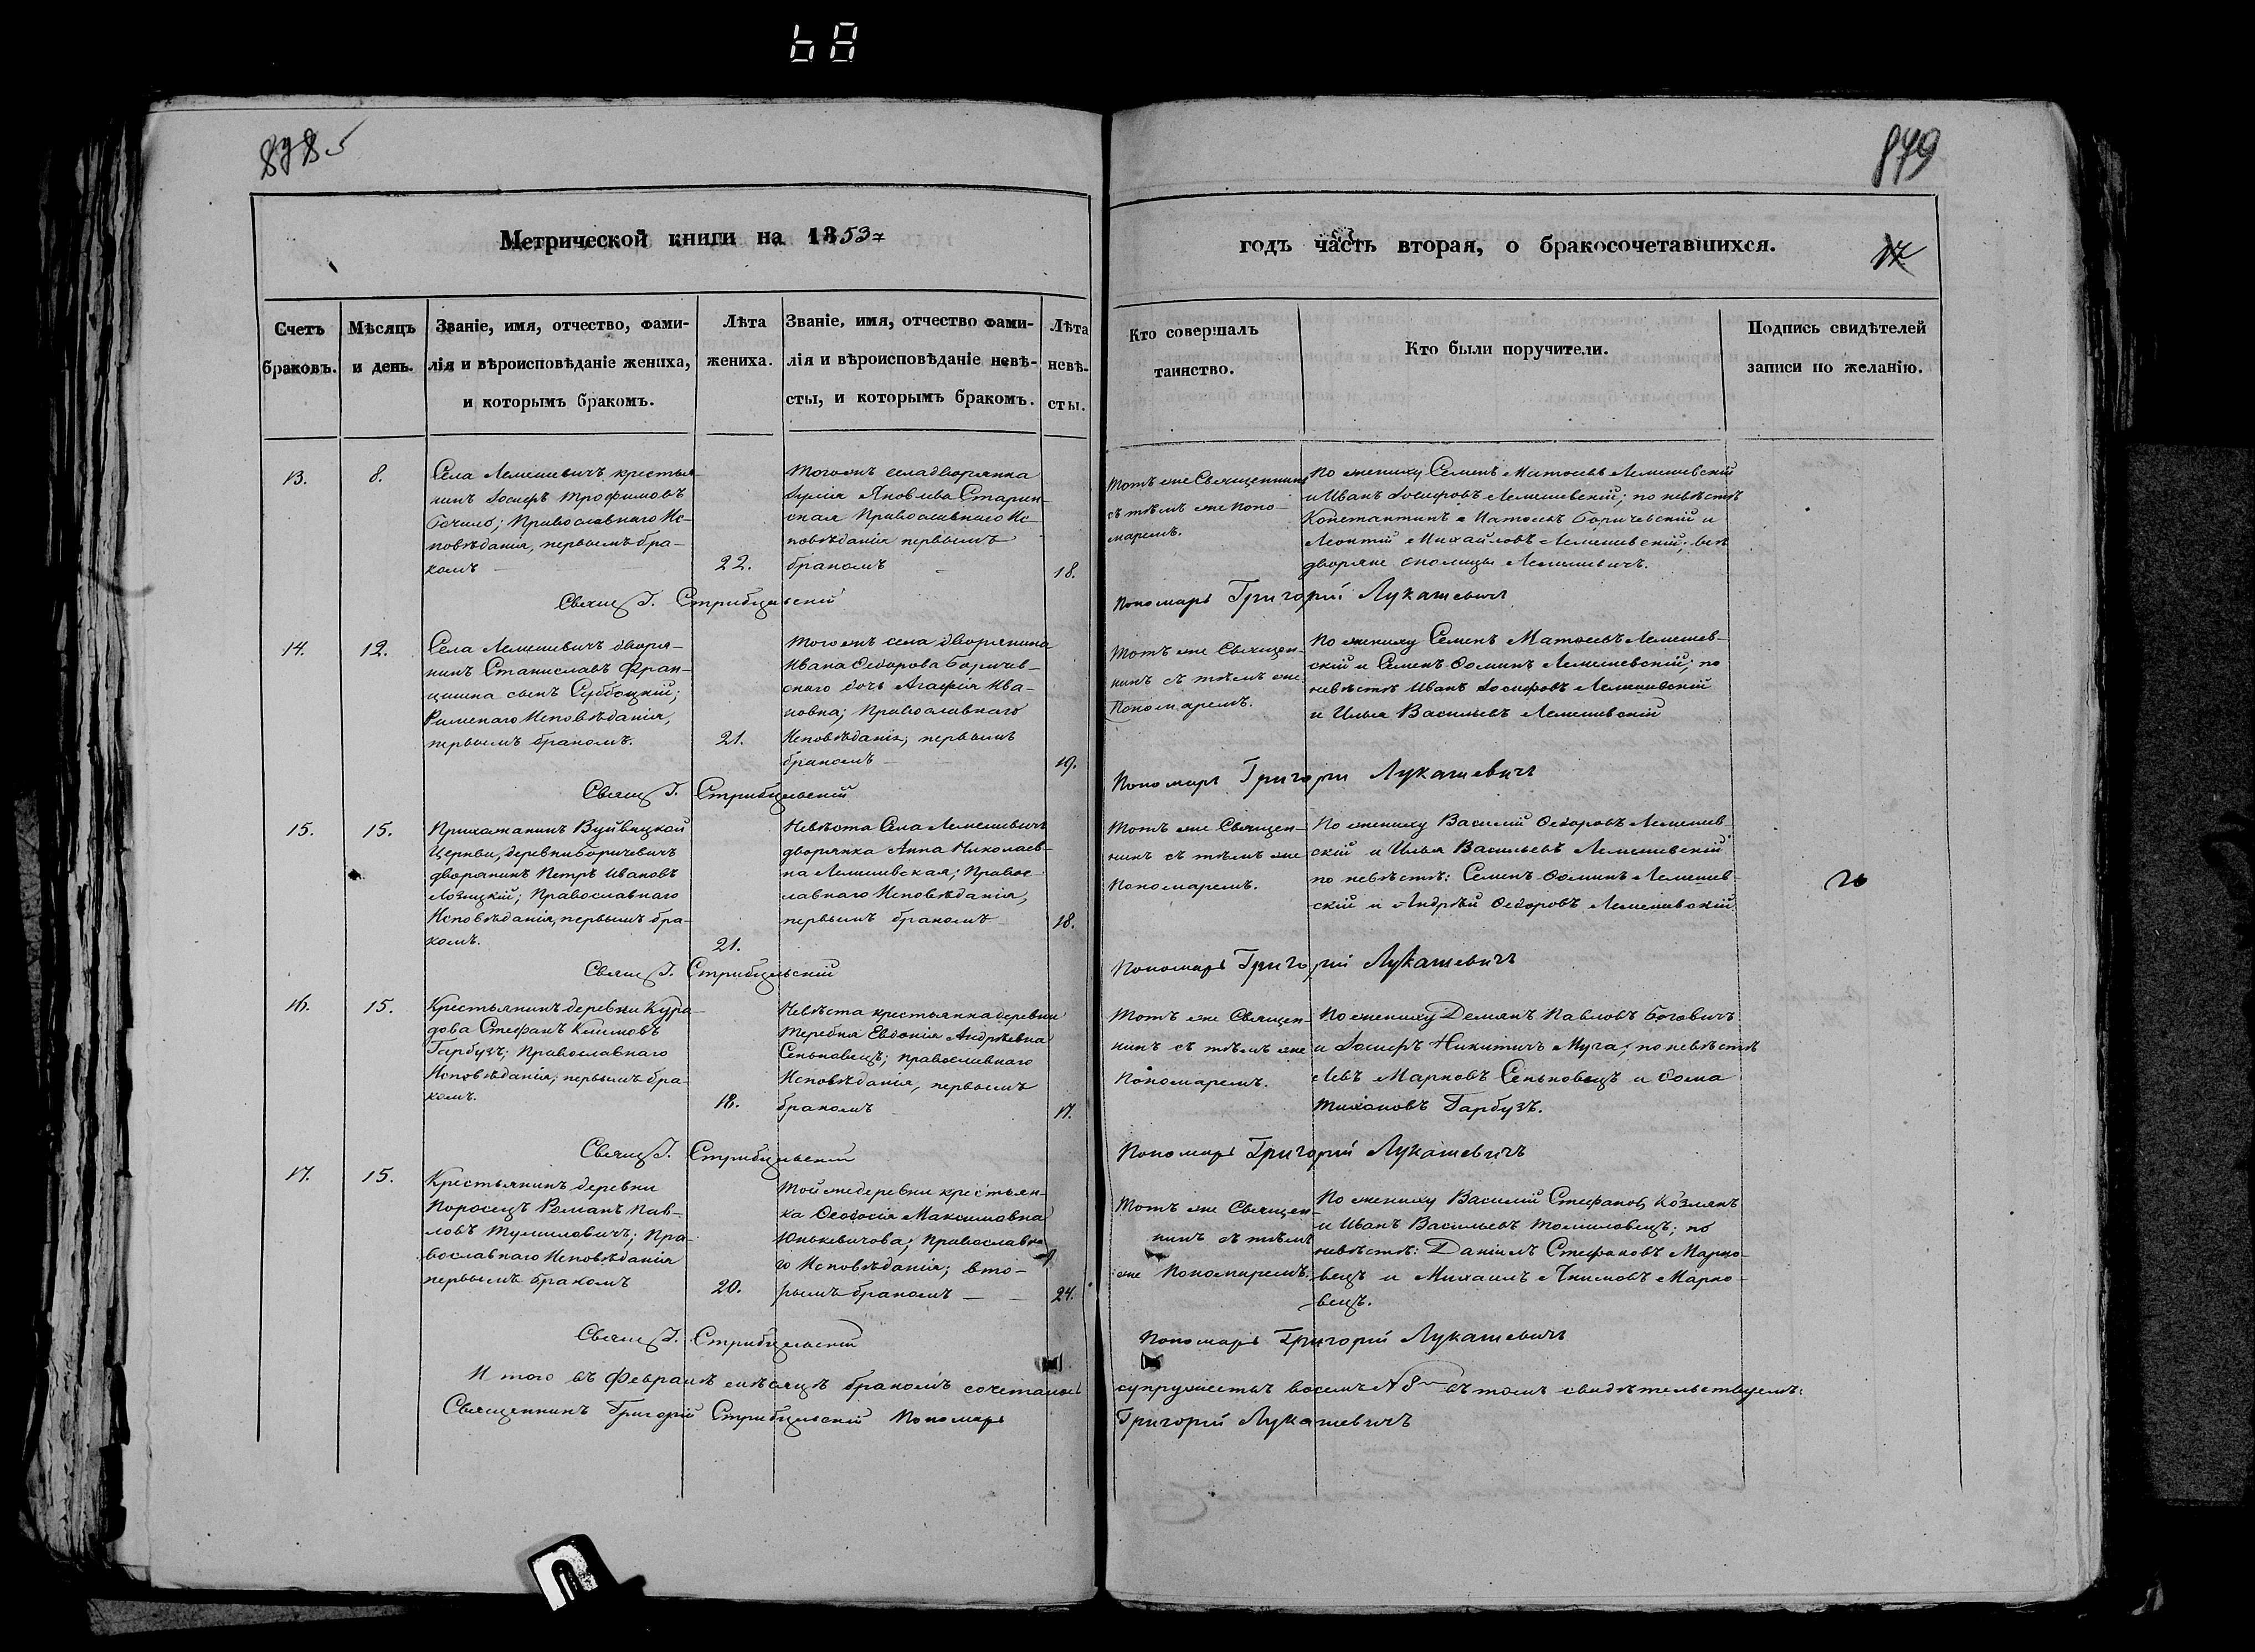 878
879
Метрической книги на 1853
годъ часть вторая, о бракосочетавшихся.
17
Счетъ
браковъ.
Мѣсяцъ
и день.
Званіе, имя, отчество, фами-
лія и вѣроисповѣданіе жениха,
и которымъ бракомъ.
Лѣта
жениха.
Званіе, имя, отчество фами-
лія и вѣроисповѣданіе невѣ-
сты, и которымъ бракомъ.
Лѣта
невѣ-
сты.
Кто совершалъ
таинство.
Кто были поручители.
Подпись свидѣтелей
записи по желанію.
13.
8.
Села Лемешевичъ крестья-
нинъ Іосифъ Трофимовъ
Православнаго Ис-
повѣданія, первымъ бра-
комъ
22.
Тогожъ села дворянка
Юлія Яковлева Старин-
ская Православнаго Ис-
повѣданія первымъ
бракомъ
18.
Тотъ же Священникъ
съ тѣмъ же Поно-
маремъ.
По жениху Семенъ Матѳеевъ Лемешевскій
и Иванъ Іосифовъ Лемешевскій; по невѣстѣ
Константинъ Матѳеевъ Боричевскій и
Леонтій Михайловъ Лемешевскій; всѣ
дворяне околицы Лемешевичъ.
Свящ Г. Стрибульскій
Пономарь Григорій Лукашевичъ
14.
12.
Села Лемешевичъ дворя-
нинъ Станиславъ Фран-
цишка сынъ
Римскаго Исповѣданія,
первымъ бракомъ.
21.
Тогожъ села дворянина
Ивана Ѳедорова Боричев-
скаго дочь Агафія Ива-
новна; Православнаго
Исповѣданія; первымъ
бракомъ
19.
Тотъ же Священ-
никъ съ тѣмъ же
Пономаремъ.
По жениху Семенъ Матѳеевъ Лемешев-
скій и Семенъ Ѳоминъ Лемешевскій; по
невѣстѣ Иванъ Іосифовъ Лемешевскій
и Илья Васильевъ Лемешевскій
Свящ Г. Стрибульскій
Пономарь Григорій Лукашевичъ
15.
15.
Прихожанинъ Вуйвицкой
Церкви, деревни Боричевичъ
дворянинъ Петръ Ивановъ
Лозицкій; Православнаго
Исповѣданія, первымъ бра-
комъ.
21.
Невѣста Села Лемешевичъ
дворянка Анна Николаев-
на Лемешевская; Правос-
лавнаго Исповѣданія,
первымъ бракомъ
18.
Тотъ же Священ-
никъ съ тѣмъ же
Пономаремъ.
По жениху Василій Ѳедоровъ Лемешев-
скій и Илья Васильевъ Лемешевскій
по невѣстѣ: Семенъ Ѳоминъ Лемешев-
скій и Андрей Ѳедоровъ Лемешевскій.
Свящ Г. Стрибульскій
Пономарь Григорій Лукашевичъ
16.
15.
Крестьянинъ деревни Кура-
дова Стефанъ Климовъ
Гарбузъ; Православнаго
Исповѣданія; первымъ бра-
комъ.
18.
Невѣста крестьянка деревни
Теребня Евдокія Андреевна
Сеньковецъ; православнаго
Исповѣданія, первымъ
бракомъ
17.
Тотъ же Священ-
никъ съ тѣмъ же
Пономаремъ.
По жениху Демянъ Павловъ Боговичъ
и Іосифъ Никитичъ Муча; по невѣстѣ
Левъ Марковъ Сеньковецъ и Ѳома
Тихоновъ Гарбузъ.
Свящ Г. Стрибульскій
Пономарь Григорій Лукашевичъ
17.
15.
Крестьянинъ деревни
Поросецъ Романъ Пав-
ловъ Тумиловичъ; Пра-
вославнаго Исповѣданія
первымъ бракомъ
20.
Той же деревни крестьян-
ка Ѳеодосія Максимовна
Юнькевичова; Православна
го Исповѣданія; вто-
рымъ бракомъ
24.
Тотъ же Священ-
никъ съ тѣмъ
же Пономаремъ.
По жениху Василій Стефановъ Козлякъ
и Иванъ Васильевъ Томиловецъ; по
невѣстѣ: Даніилъ Стефановъ Марко-
вецъ и Михаилъ Акимовъ Марко-
вецъ.
Свящ Г. Стрибульскій
Пономарь Григорій Лукашевичъ
И того въ Февралѣ мѣсяцѣ бракомъ сочеталось супружествъ восемь № 8 въ томъ свидѣтельствуемъ:
Священникъ Григорій Стрибульскій Пономарь Григорій Лукашевичъ